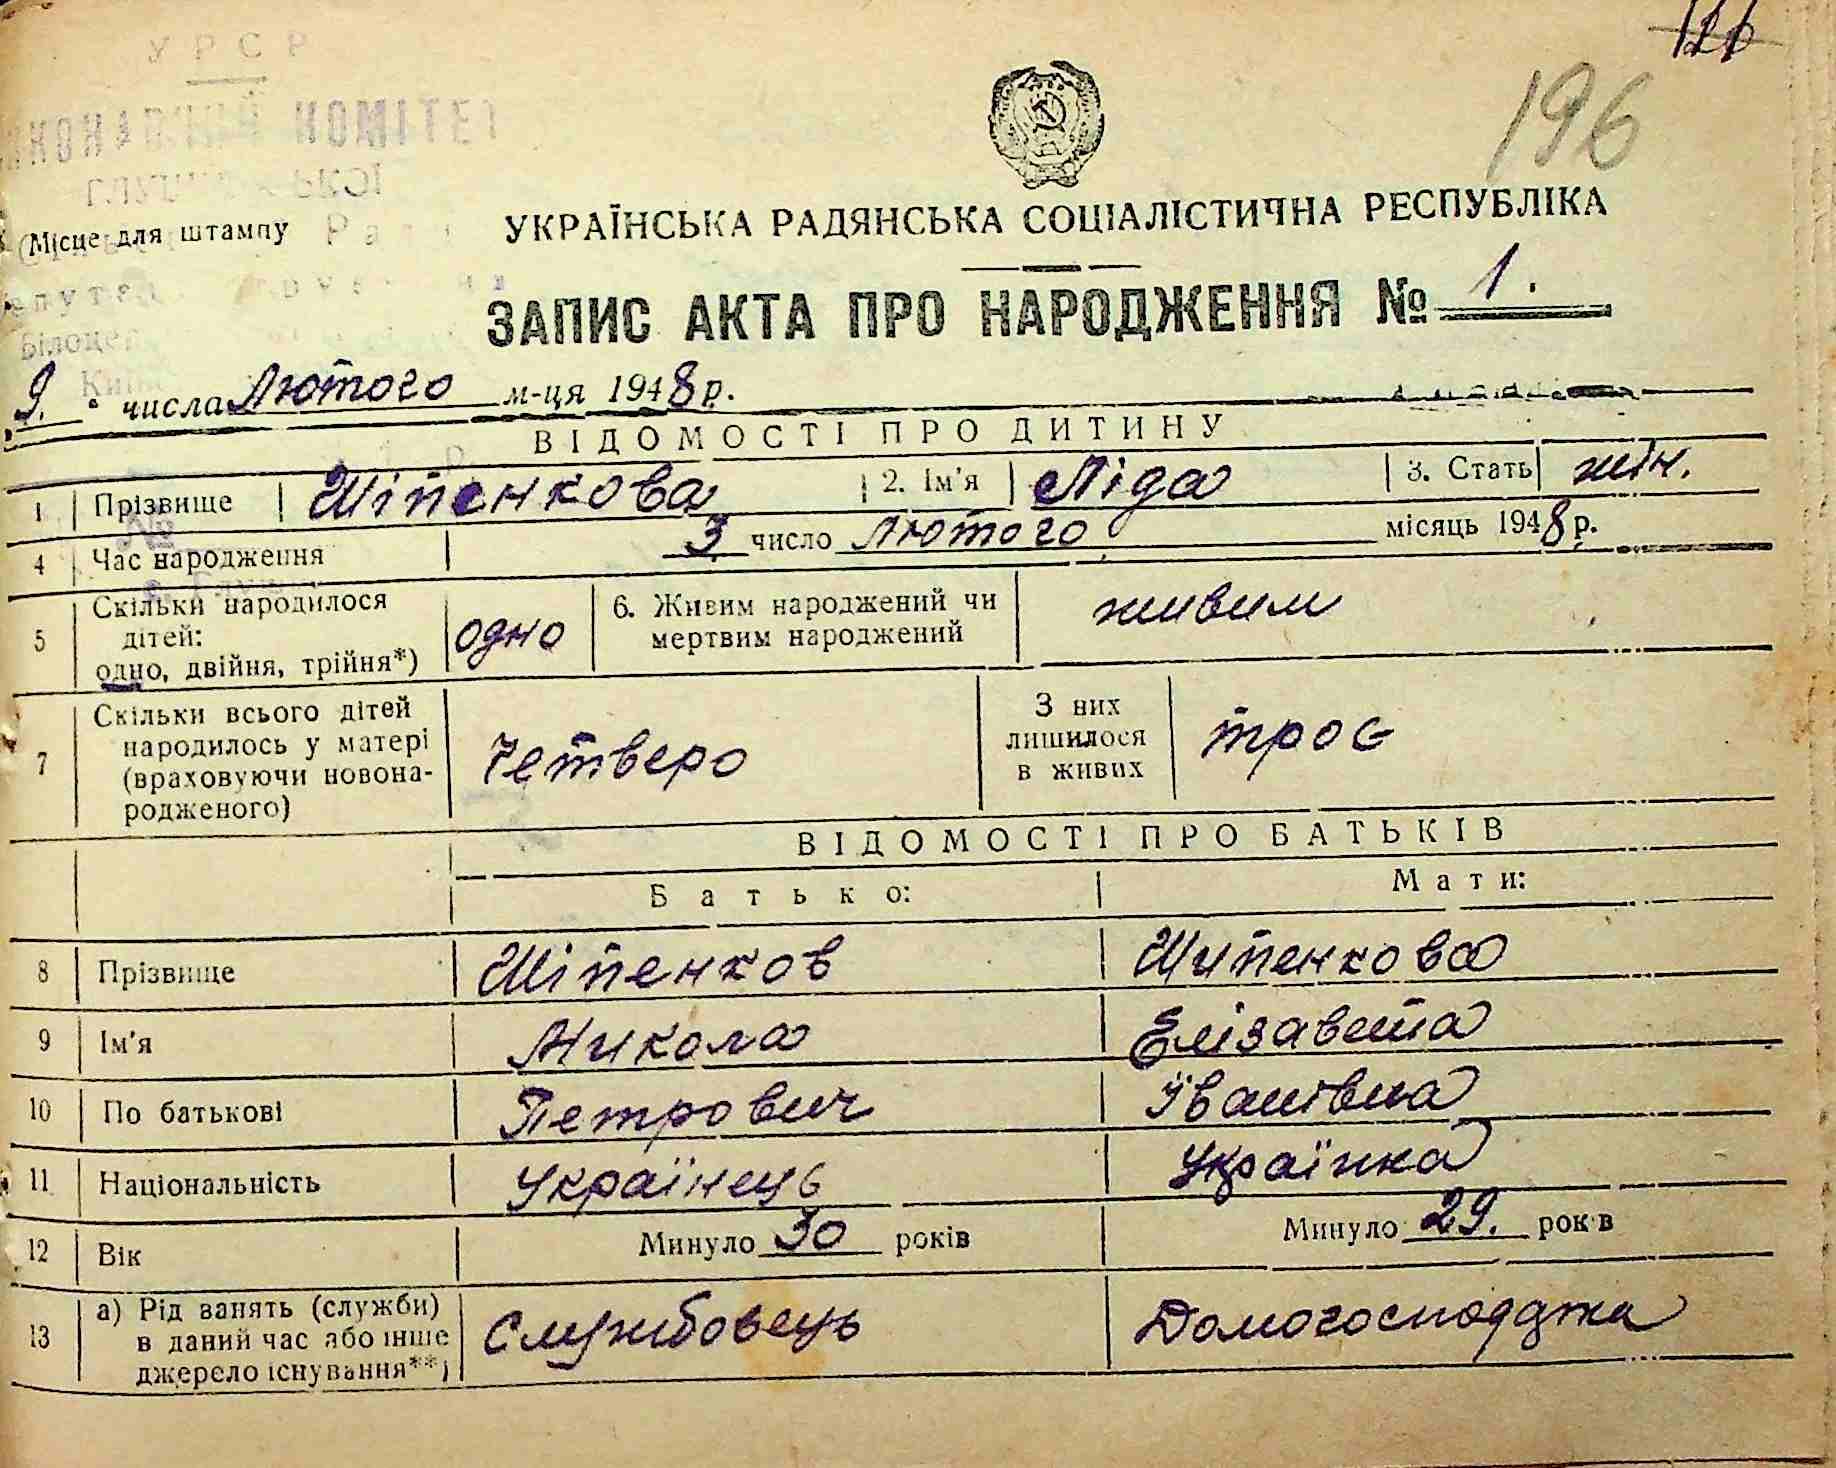 196
УРСР
КОМІТЕТ
(Місце для штампу
УКРАЇНСЬКА РАДЯНСЬКА СОЦІАЛІСТИЧНА РЕСПУБЛІКА
ЗАПИС АКТА ПРО НАРОДЖЕННЯ № 1.
9. числа Лютого м-ця 1948 р.
ВІДОМОСТІ ПРО ДИТИНУ
1 Прізвище Шіпенкова 2. Ім'я Ліда 3. Стать жін.
4 Час народження 3 число Лютого місяць 1948 р.
5 Скільки народилося дітей: одно, двійня, трійня*) одно 6. Живим народжений чи мертвим народжений живим
7 Скільки всього дітей народилось у матері (враховуючи новонародженого) Четверо З них лишилося в живих троє
ВІДОМОСТІ ПРО БАТЬКІВ
Батько: Мати:
8 Прізвище Шіпенков Шипенкова
9 Ім'я Микола Елізавета
10 По батькові Петрович Іванівна
11 Національність Українець Українка
12 Вік Минуло 30 років Минуло 29. років
13 а) Рід занять (служби) в даний час або інше джерело існування**) Службовець Домогосподджа